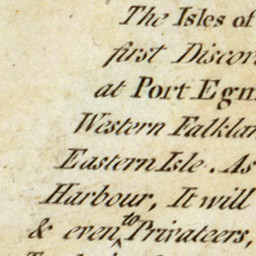 The Isles of
first Discov
at Port Egm
Western Falklan
Eastern Isle. As
Harbour, It will
& even to Privateers,